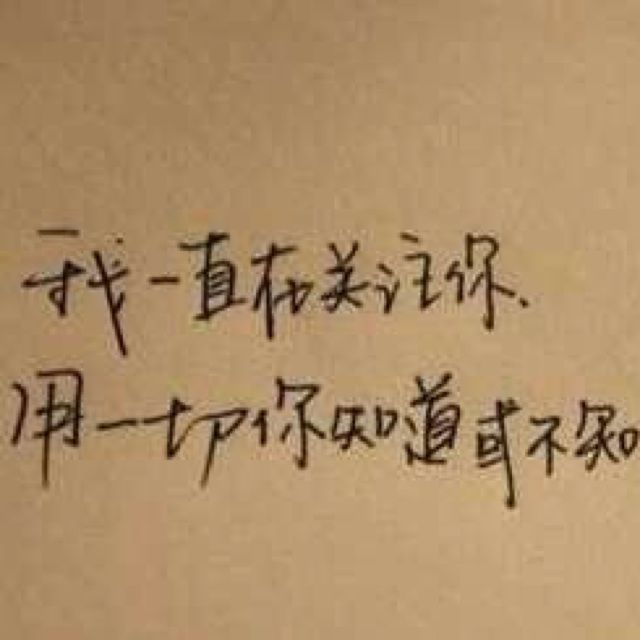 我一直在关注你、
用一切你知道或不知